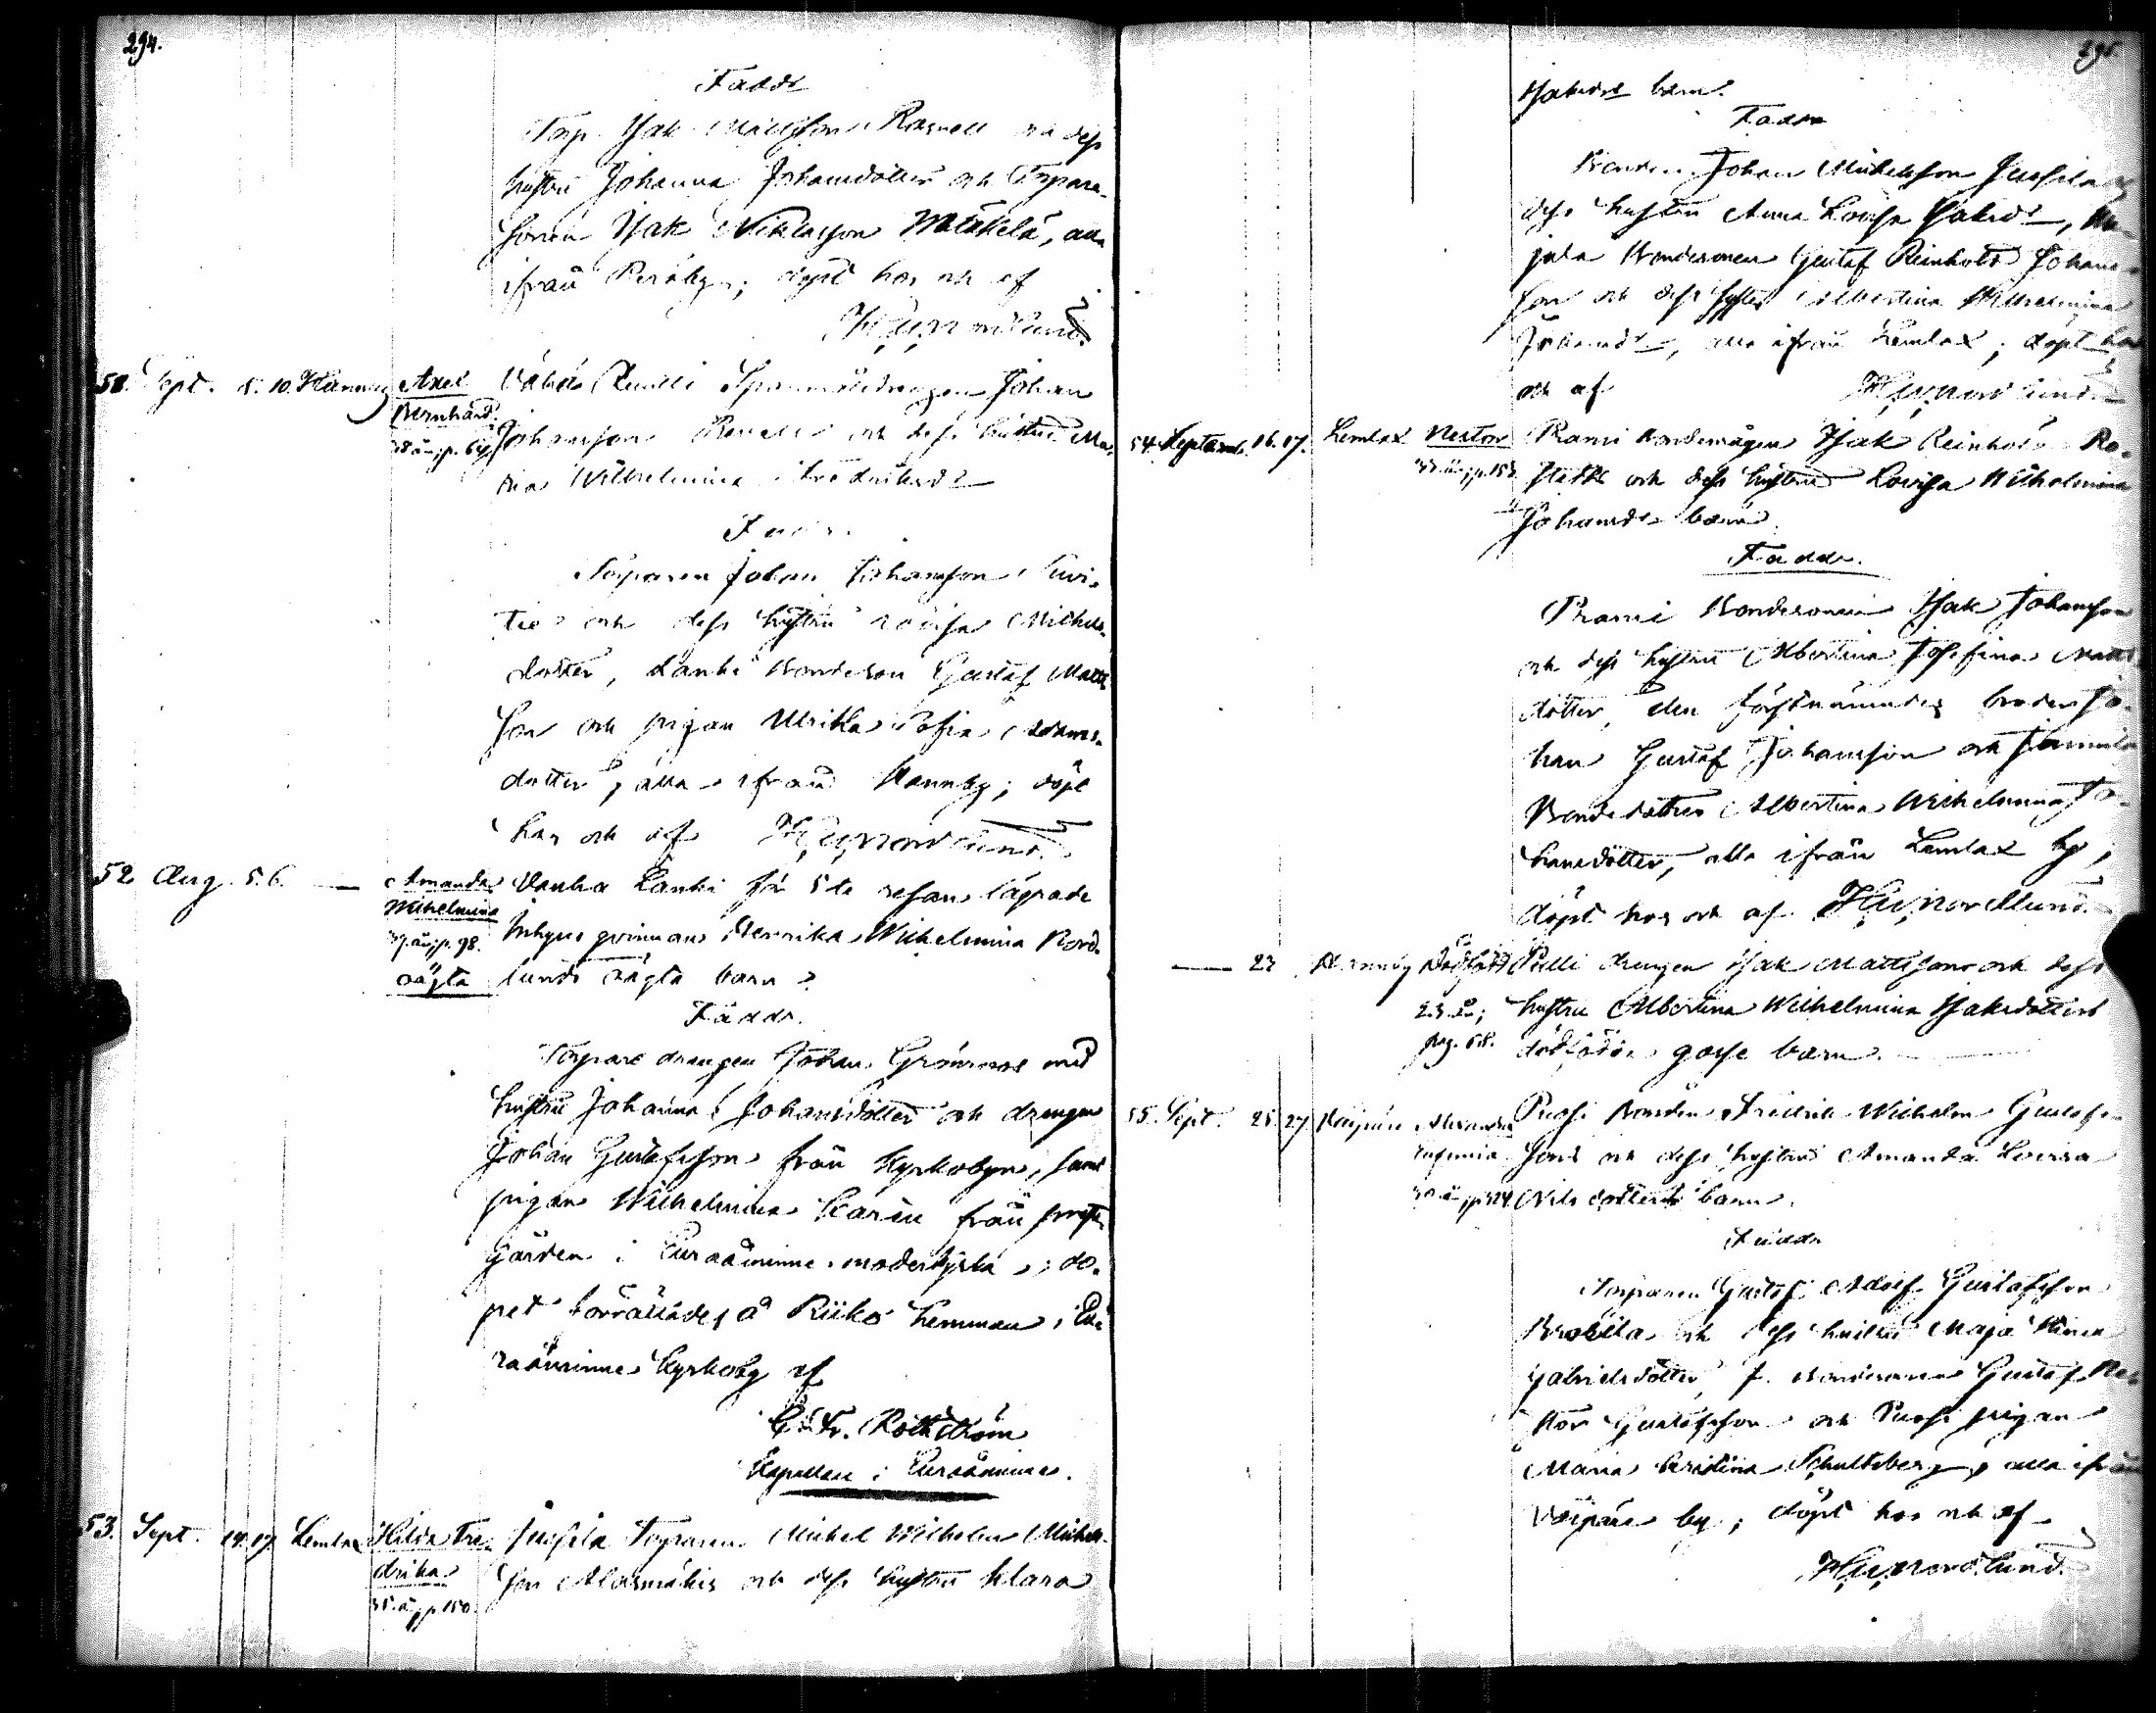 294.
Faddr
Torp. Isak Mattsson Rosnell och dess
hustru Johanna Johansdotter och Torpare
sonen Isak Niklasson Mäkelä, alla
ifrån Peräby; döpt hos och af
Hj. Nordlund.
51. Sept. 8. 10. Hannuby Axel Vähä Ruulli Spanmålsdrängen Johan
Bernhard. Johansson och dess hustru Ma-
38 år; p. 64 ria Wilhelmina Fredriksdr
Faddr.
Torparen Johan Johansson
och dess hustru Lovisa Michels-
dotter, Lanki Bondeson Gustaf Matts
son och pigan Ulrika Sofia Adams-
dotter, alla ifrån Hannuby; döpt
hos och af Hj. Nordlund.
52 Aug. 5. 6. — Amanda Vanha Lanki för 5te resan lägrade
Wilhelmina Inhyses qvinnan Henrika Wilhelmina Nord-
37 år; p. 98. lunds oägta barn
oägta
Faddr.
Torpare drängen Johan Grönroos med
hustru Johanna Johansdotter och drängen
Johan Gustafsson från Kyrkobyn, samt
pigan Wilhelmina Karin från prest
gården i Euraåminne moderkyrka; do-
pet förrättades å Riiko hemman i Eu-
raåminne Kyrkoby af
C. Fr. Rothström
Kapellan i Euraåminne.
53. Sept. 14. 17 Lemlax Hilda Fre- Jussila Torparen Michel Wilhelm Michels-
drika son och dess hustru Klara
35 år; p. 150.
295.
Isaksdr barn.
Faddr
Bonden Johan Michelsson Jussila
dess hustru Anna Lovisa Isaksdr,
jala Bondesonen Gustaf Reinhold Johans
son och dess syster Albertina Wilhelmina
Johansdr, alla ifrån Lemlax; döpt hos
och af Hj. Nordlund
54. Septemb. 16. 17. Lemlax Nestor Prami Bondemågen Isak Reinhold Ro-
33 år; p. 153 stedt och dess hustru Lovisa Wilhelmina
Johansdr barn
Faddr.
Prami Bondesonen Isak Johansson
och dess hustru Albertina Josefina Matts
dotter, den förstnämndes broder Jo-
han Gustaf Johansson och
Bondedotter Albertina Wilhelmina Jo-
hansdotter, alla ifrån Lemlax by;
döpt hos och af Hj. Nordlund.
— 23 Hannuby Dödfödt Pulli drängen Isak Mattsson och dess
23 år; hustru Albertina Wilhelmina Isaksdotters
pag. 68. dödfödda gosse barn.
55. Sept. 25. 27. Alexandra Puosi Bonden Fredrik Wilhelm Gustafs-
Eufemia sons och dess hustrus Amanda Lovisa
Nilsdotters barn.
Faddr
Torparen Gustaf Adolf Gustafsson
och dess hustru Maja Stina
Gabrielsdotter, f. Bondesonen Gustaf Ne-
stor Gustafsson och Puosi pigan
Maria Kristina Schultsberg, alla ifrån
by; döpt hos och af
Hj. Nordlund.